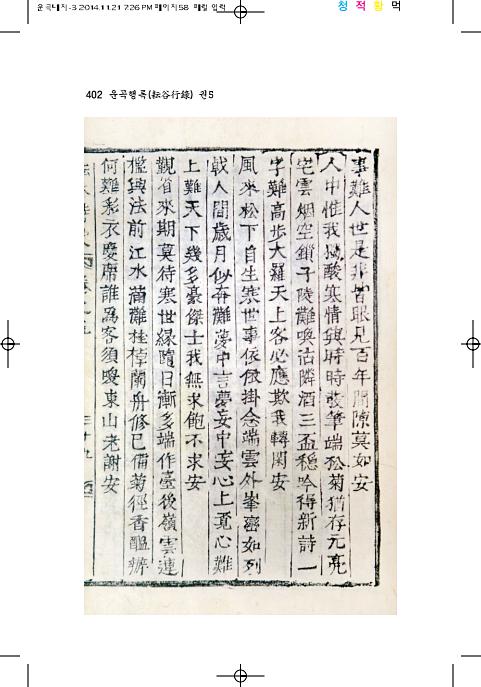 운곡내지-3 2014.11.21 7:26 PM 페이지58 메릴 입력
청 적 황 먹
402 운곡행록(耘谷行錄) 권5
事難人世是非皆眼見百年閒隙莫如安
人中惟我酸寒情興時時發筆端松菊猶存元亮
宅雲烟空鎖子陵灘喚沽隣酒三盃穩吟得新詩一
字難高步大羅天上客必應欺我轉閑安
風來松下自生寒世事依依掛念端雲外峯巒如列
戟人間歲月似奔灘夢中言夢妄中妄心上覓心難
上難天下幾多豪傑士我無求飽不求安
觀省來期莫待寒世緣隨日漸多端作室後嶺雲連
檻興法前江水滿灘桂棹蘭舟修已備菊徑香醞辦
何難彩衣慶席誰爲客須曖東山老謝安